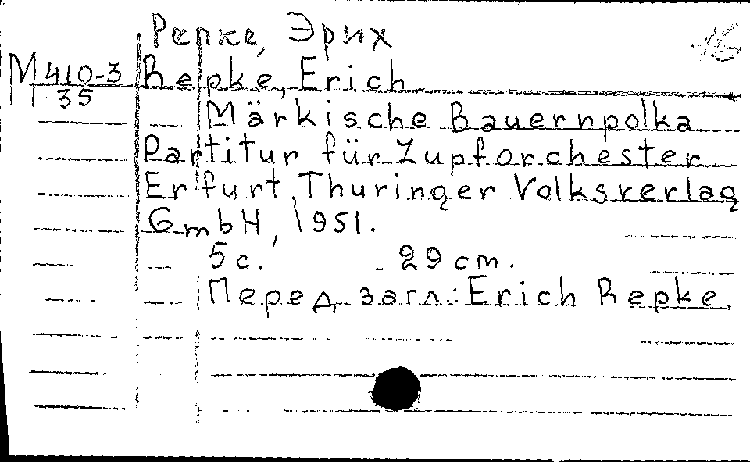 Репке, Эрих
16
М 410-3
35
Repke, Erich
Märkische Bauernpolka
Partitur für Zupforchester
Erfurt, Thuringer Volksverlag
GmbH, 1951.
5 с. 29 cm.
Перед загл.: Erich Repke